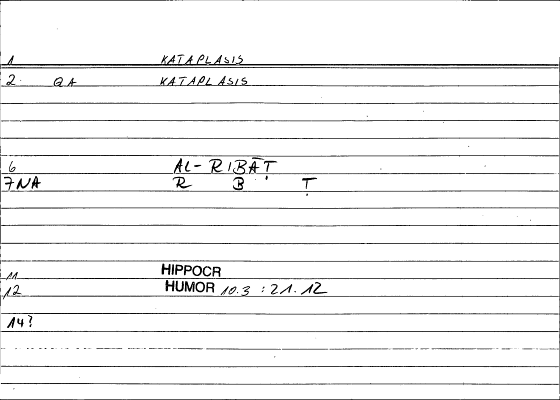 1 KATAPLASIS
2 QA KATAPLASIS
6 AL-RIBĀṬ
7 NA R B Ṭ
11 HIPPOCR
12 HUMOR 10.3 : 21.12
14?